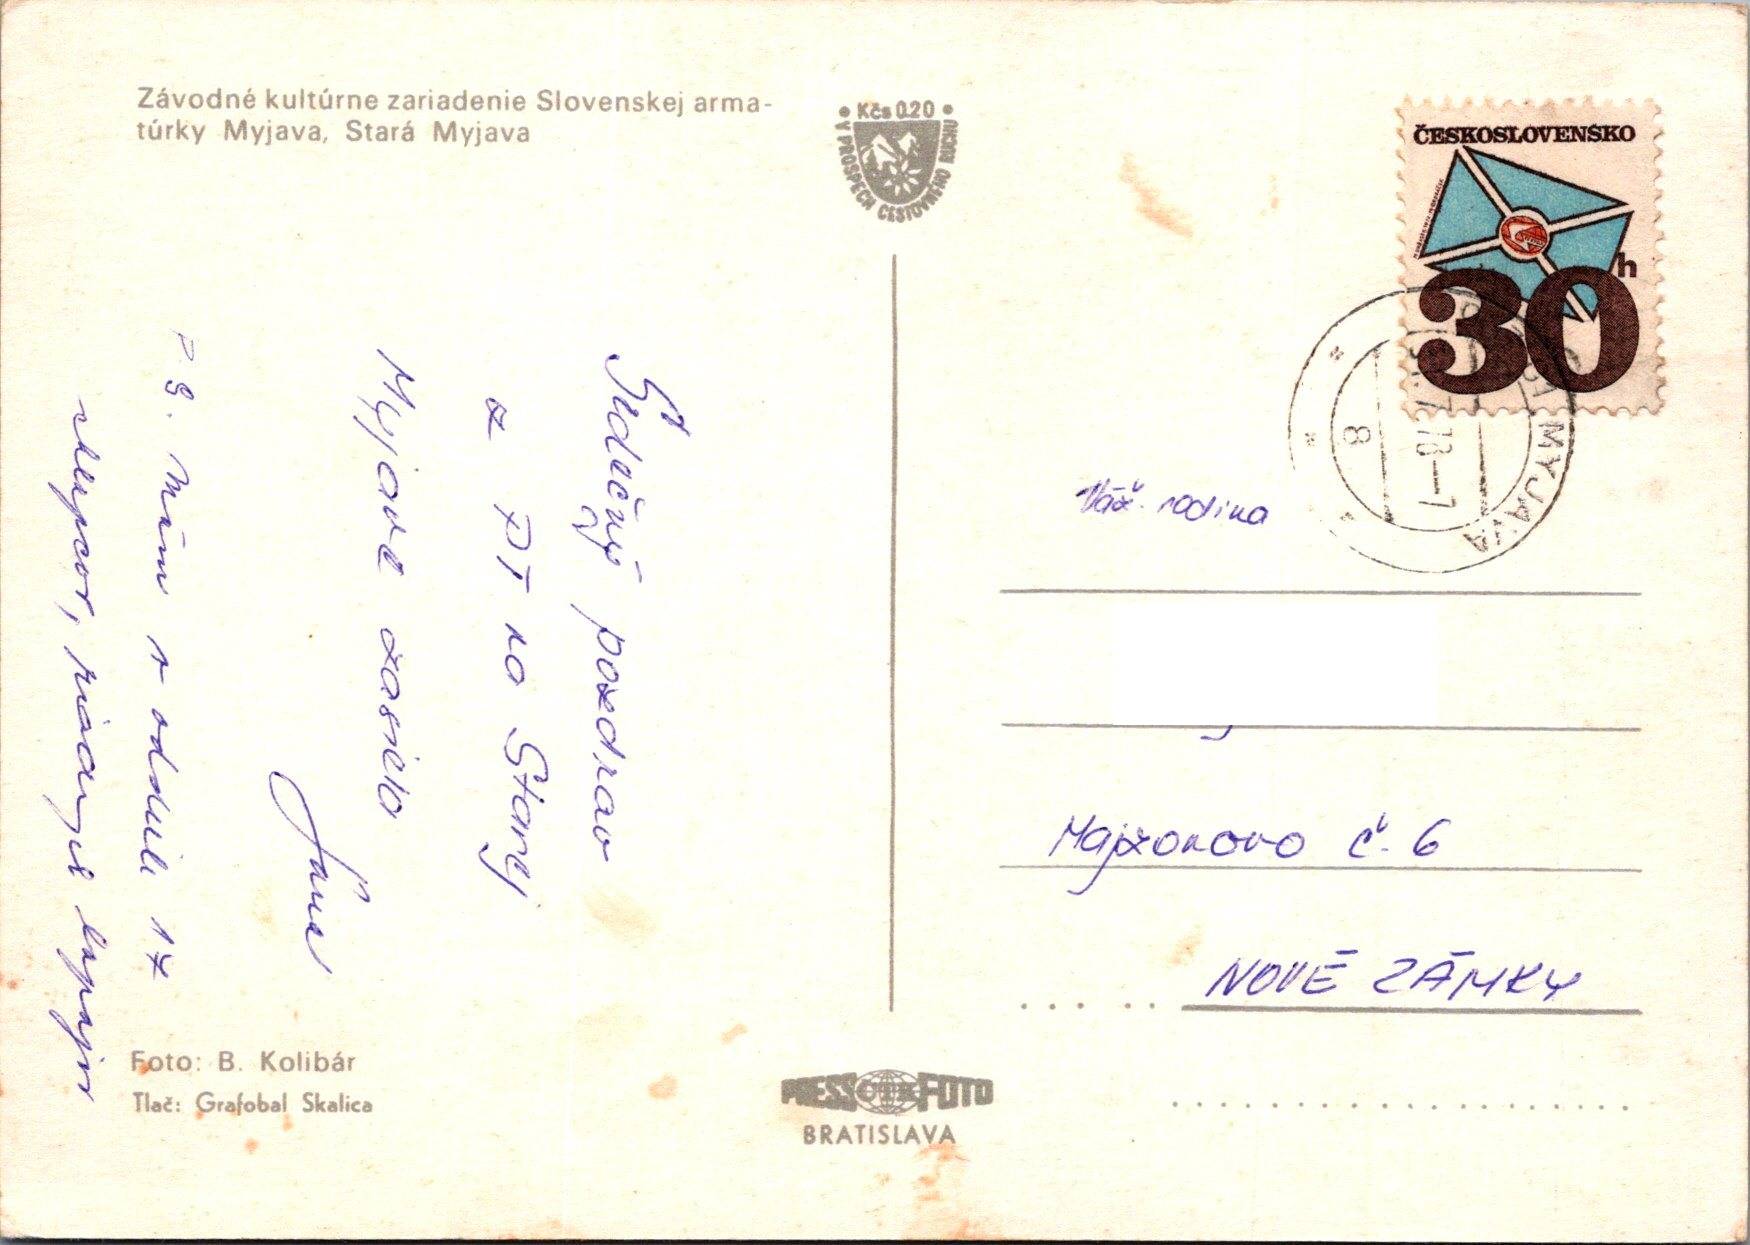 Závodné kultúrne zariadenie Slovenskej arma-
túrky Myjava, Stará Myjava
Kčs 0.20
V PROSPECH CESTOVNÉHO RUCHU
ČESKOSLOVENSKO
30h
MYJAVA
8
Srdečný pozdrav
z PT na Starej
Myjave zasiela
P.S. Mám v oddiele 17
chlapcov,
Váž. rodina
Majzonovo č. 6
NOVÉ ZÁMKY
Foto: B. Kolibár
Tlač: Grafobal Skalica
PRESSFOTO
BRATISLAVA